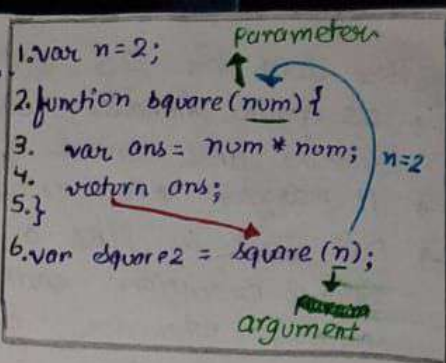 parameter
1. var n = 2;
2. function square (num) {
3. var ans = num * num;
n=2
4. return ans;
5. }
6. var square2 = square (n);
argument